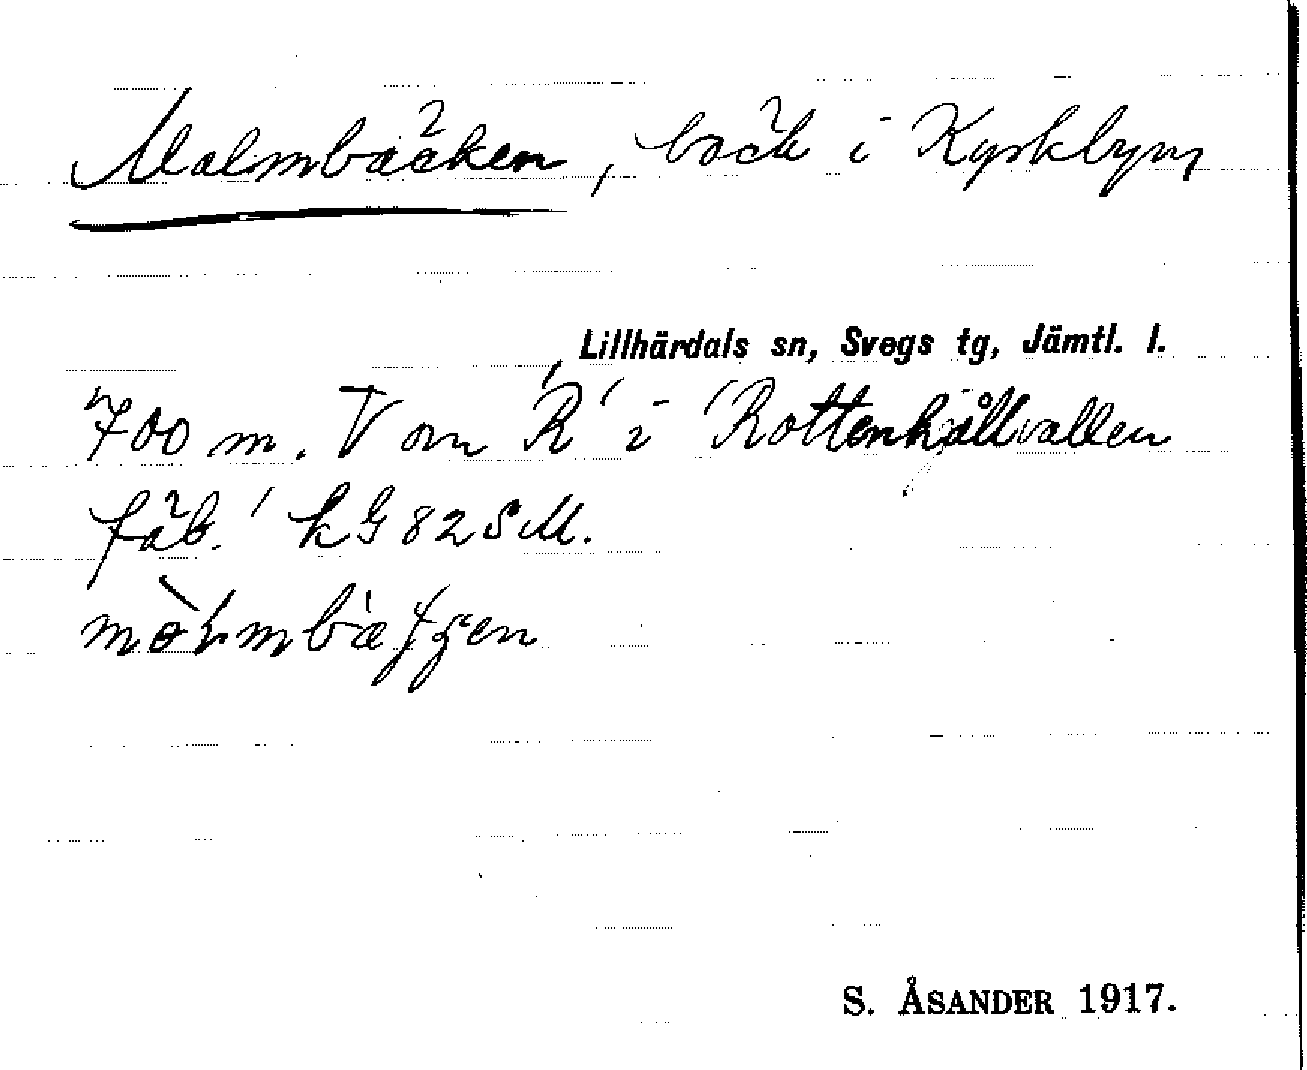 Malmbäcken, bäck i Kyrkbyn,
Lillhärdals sn, Svegs tg, Jämtl. l.
700 m. V om 'R' i 'Rottenhållvallen
fäb.' kG 82 SM.
S. ÅSANDER 1917.